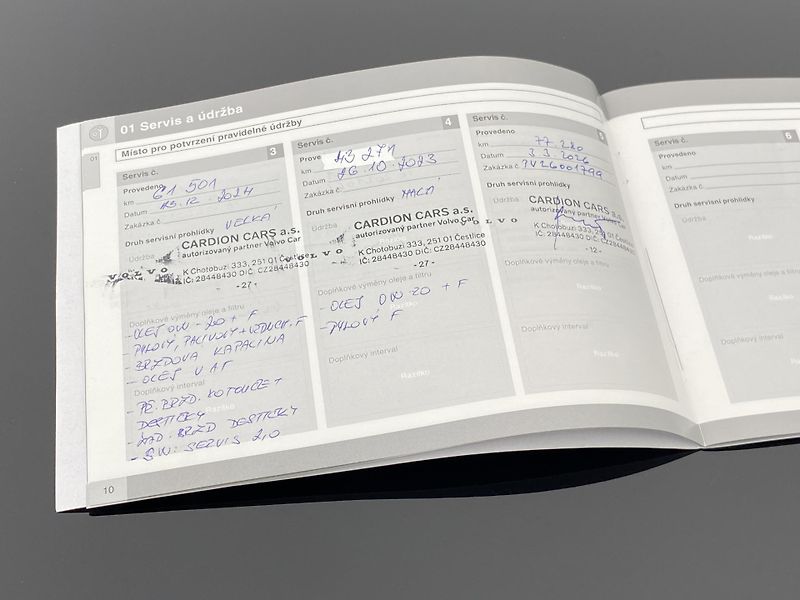 01 Servis a údržba
01
Místo pro potvrzení pravidelné údržby
3
Servis č.
Provedeno
km 61 501
Datum 13.12.2024
Zakázka č.
VELKÁ
Druh servisní prohlídky
Údržba
CARDION CARS a.s.
autorizovaný partner Volvo Car
VOLVO
K Chotobuzi 333, 251 01 Čestlice
IČ: 28448430 DIČ: CZ28448430
-27-
Doplňkové výměny oleje a filtru
- OLEJ 0W-20 + F
- PYLOVÝ, PALIVOVÝ + VZDUCH. F
- BRZDOVA KAPALINA
- OLEJ V AF
Doplňkový interval
- PŘ. BRZD. KOTOUČE +
Razítko
DESTIČKY
- ZAD. BRZD DESTIČKY
- SW: SERVIS 2,0
4
Servis č.
Prove
43 271
km
Datum 26.10.2023
Zakázka č.
MALÁ
Druh servisní prohlídky
Údržba
CARDION CARS a.s.
autorizovaný partner Volvo Car
VOLVO
K Chotobuzi 333, 251 01 Čestlice
IČ: 28448430 DIČ: CZ28448430
-27-
Doplňkové výměny oleje a filtru
- OLEJ 0W-20 + F
Razítko
- PYLOVÝ F
Doplňkový interval
Razítko
5
Servis č.
Provedeno
km 77 280
Datum 3 3 2026
Zakázka č. ZV26001799
Druh servisní prohlídky
Údržba
CARDION CARS a.s.
autorizovaný partner Volvo Car
VOLVO
K Chotobuzi 333, 251 01 Čestlice
IČ: 28448430 DIČ: CZ28448430
-12-
Doplňkové výměny oleje a filtru
Razítko
Doplňkový interval
Razítko
6
Servis č.
Provedeno
km
Datum
Zakázka č.
Druh servisní prohlídky
Údržba
Razítko
Doplňkové výměny
Razítko
Doplňkový interval
Razítko
10